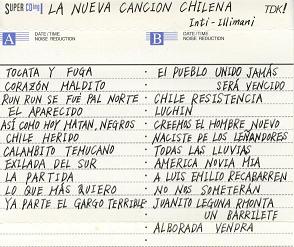 SUPER CDing I LA NUEVA CANCION CHILENA TDK!
Inti-Illimani
A DATE/TIME NOISE REDUCTION B DATE/TIME NOISE REDUCTION
TOCATA Y FUGA
CORAZÓN MALDITO
RUN RUN SE FUÉ PAL NORTE
EL APARECIDO
ASÍ COMO HOY MATAN, NEGROS
CHILE HERIDO
CALAMBITO TEMUCANO
EXILADA DEL SUR
LA PARTIDA
LO QUE MÁS QUIERO
YA PARTE EL GARGO TERRIBLE
· EL PUEBLO UNIDO JAMÁS
SERÁ VENCIDO
· CHILE RESISTENCIA
· LUCHIN
· CREEMOS EL HOMBRE NUEVO
· NACISTE DE LOS LEÑANDORES
· TODAS LAS LLUVIAS
· AMERICA NOVIA MIA
· A LUIS EMILIO RECABARREN
· NO NOS SOMETERÁN
· JUANITO LEGUNA RMONTA
UN BARRILETE
· ALBORADA VENDRA